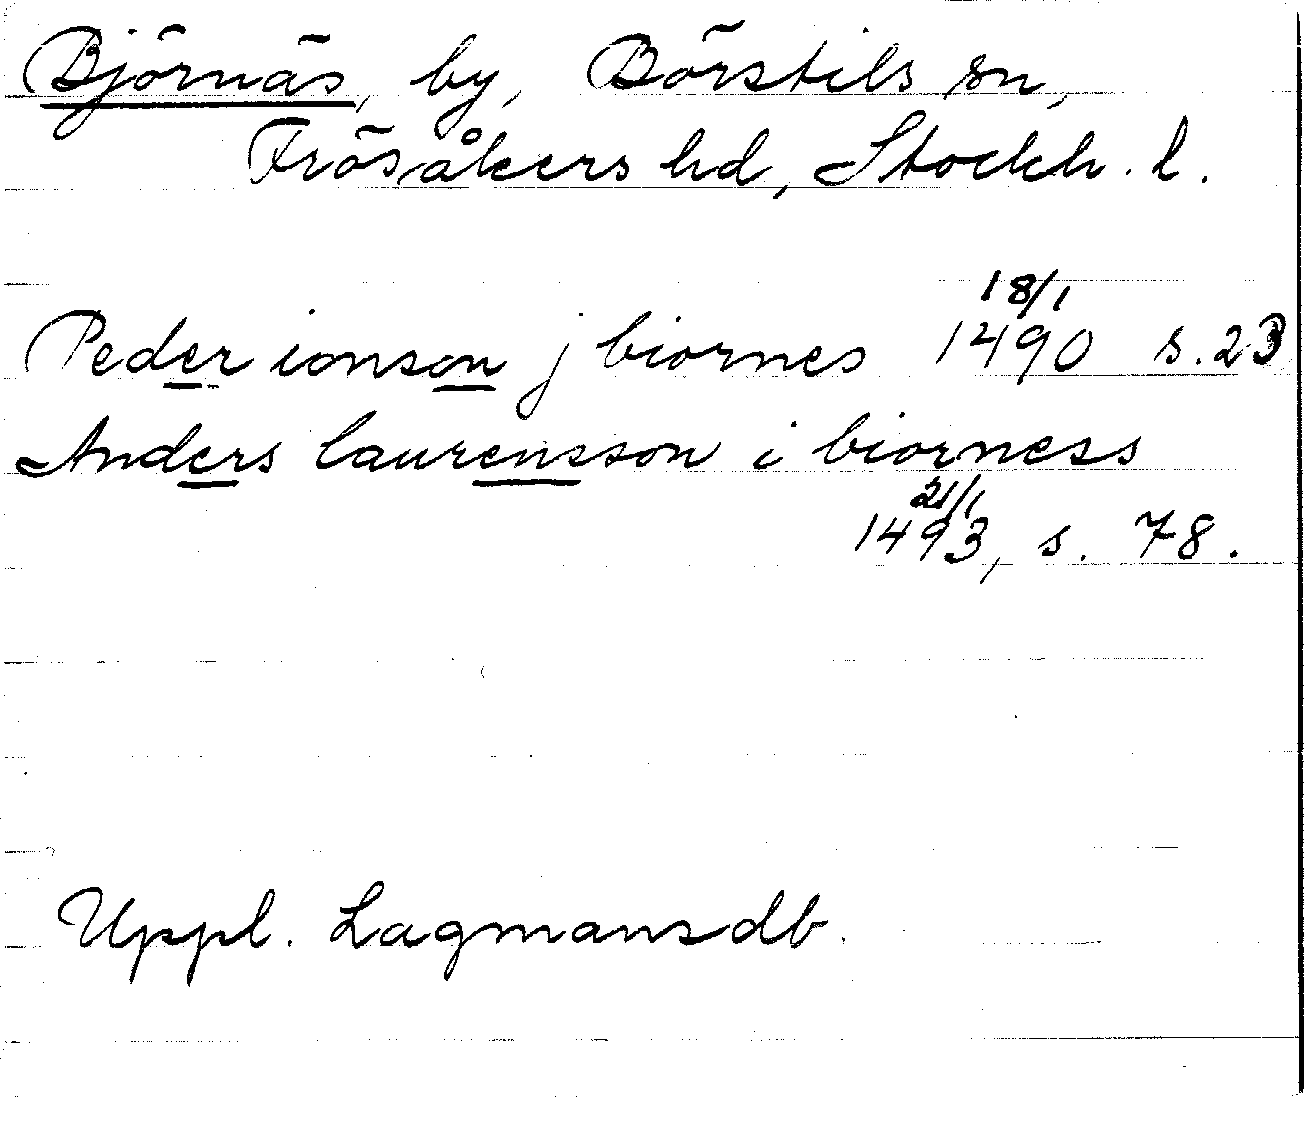 Björnäs, by, Börstils sn,
Frösåkers hd, Stockh. l.
18/1
Peder ionson j biornes 1490 s. 23
Anders laurensson i biorness
21/1
1493, s. 78.
Uppl. Lagmansdb.